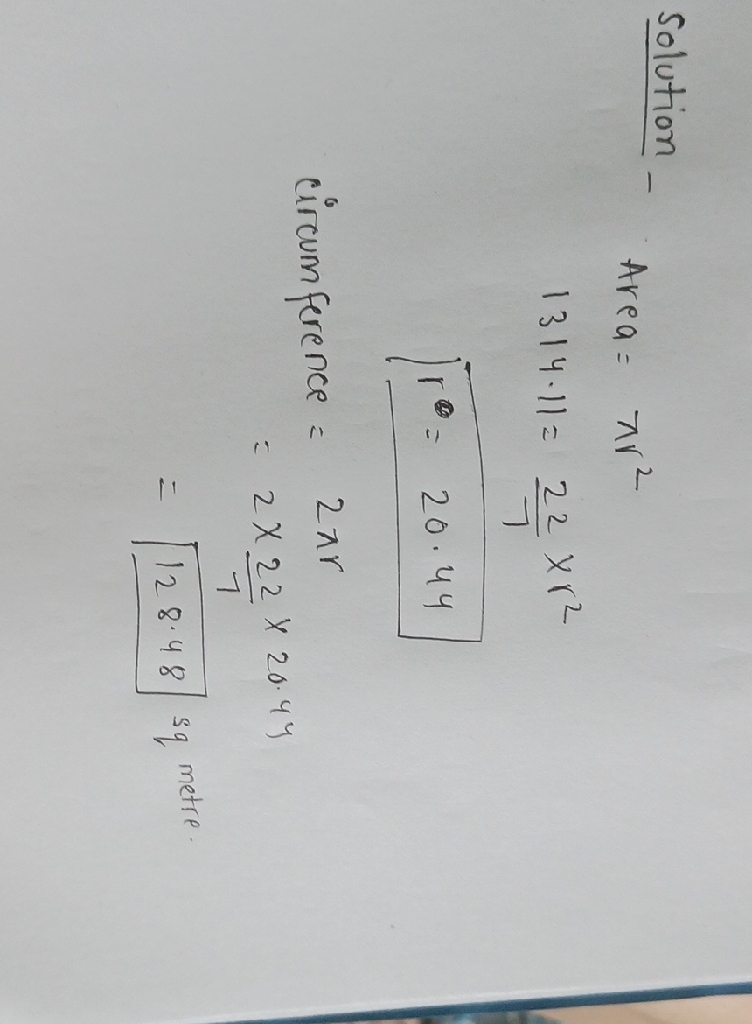 Solution - Area = πr²
1314.11 = 22/7 x r²
r = 20.44
circumference = 2πr
= 2 x 22/7 x 20.44
= 128.48 sq metre.